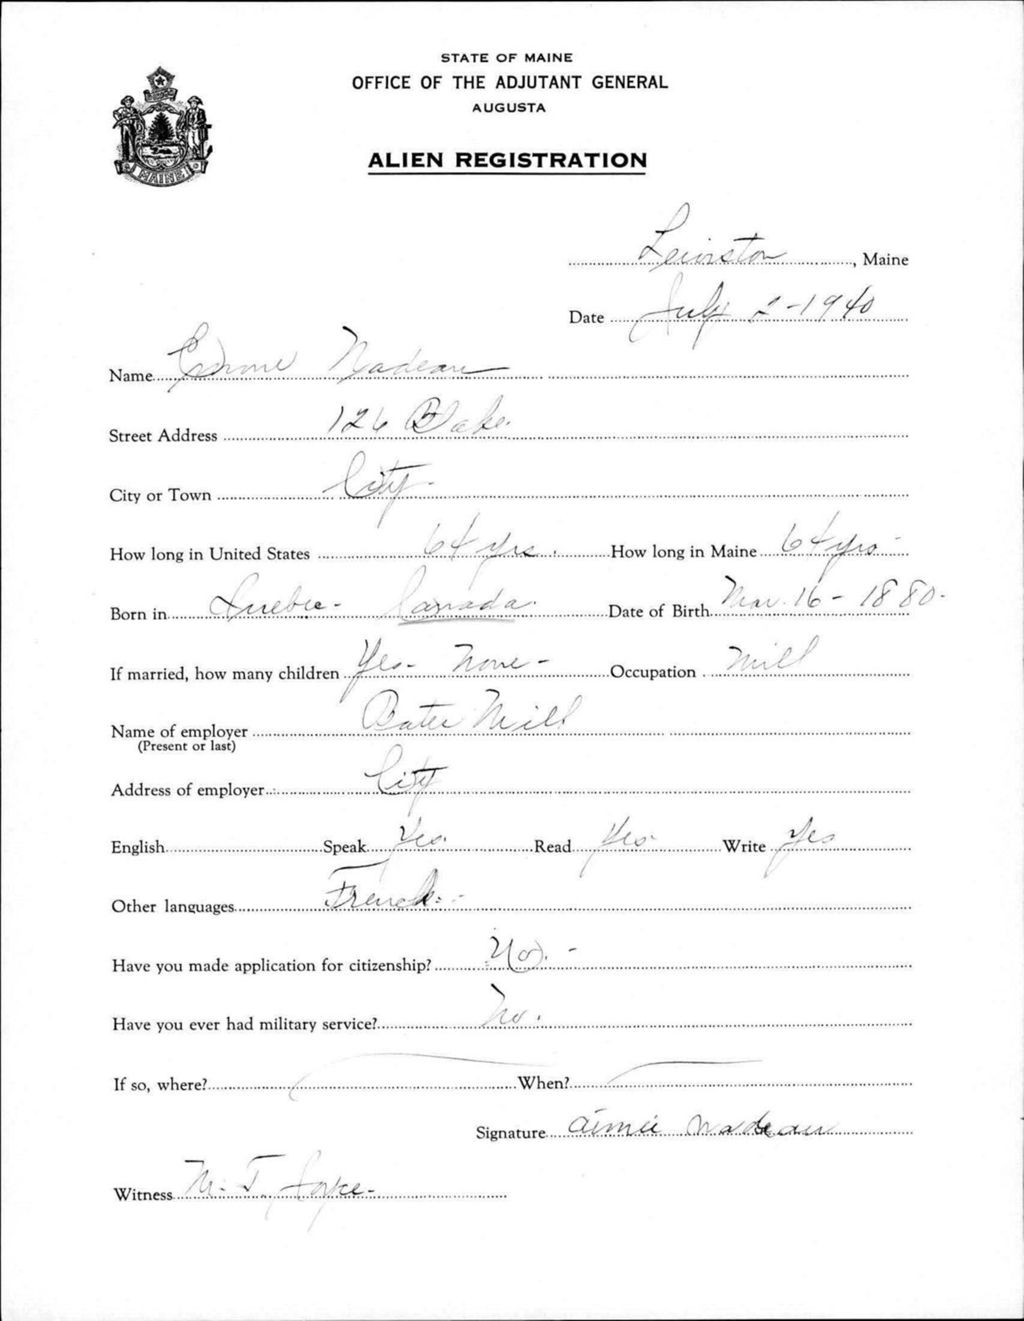 STATE OF MAINE
OFFICE OF THE ADJUTANT GENERAL
AUGUSTA
MAINE
ALIEN REGISTRATION
Lewiston, Maine
Date July 2-1940
Name Nadeau
Street Address 126 Blake.
City or Town City-
How long in United States 64 yrs. How long in Maine 64 yrs-
Born in Quebec- Canada. Date of Birth Mar. 16-1880-
If married, how many children Yes- None- Occupation Mill
Name of employer Bates Mill
(Present or last)
Address of employer City
English Speak Yes. Read Yes- Write Yes
Other languages French.-
Have you made application for citizenship? No.-
Have you ever had military service? No.
If so, where? When?
Signature Aimée Nadeau
Witness M. T. Joyce-